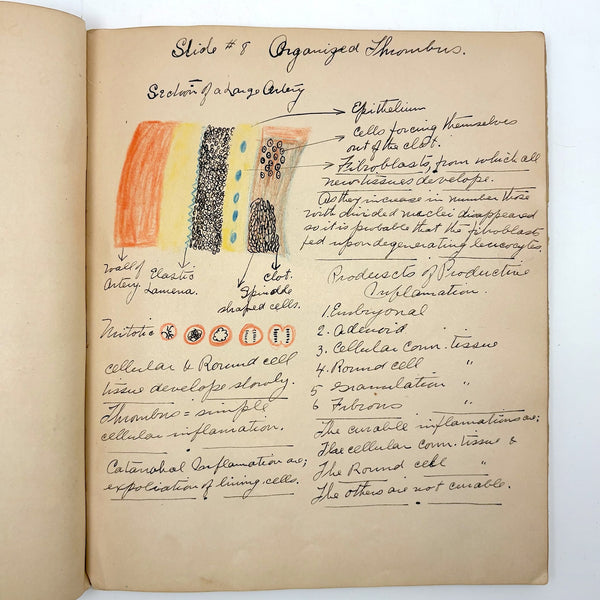 Slide # 8 Organized Thrombus.
Section of a Large Artery
Epithelium
Cells forcing themselves
out of the clot.
Fibroblasts, from which all
new tissues develope.
As they increase in number those
with divided nuclei disappeared
so it is probable that the fibroblasts
fed upon degenerating leucocytes.
Wall of
Artery.
Elastic
Lamena.
Spindle
shaped cells.
Clot.
Mitotic
cellular & Round cell
tissue develope slowly.
Thrombus = simple
cellular inflamation.
Catarrhal Inflamation are;
expoliation of living cells.
Products of Productive
Inflamation.
1. Embryonal
2. Adenoid " "
3. Cellular conn. tissue
4. Round cell "
5 Granulation "
6 Fibrous "
The curable inflamations are;
The cellular conn. tissue &
The Round cell "
The others are not curable.